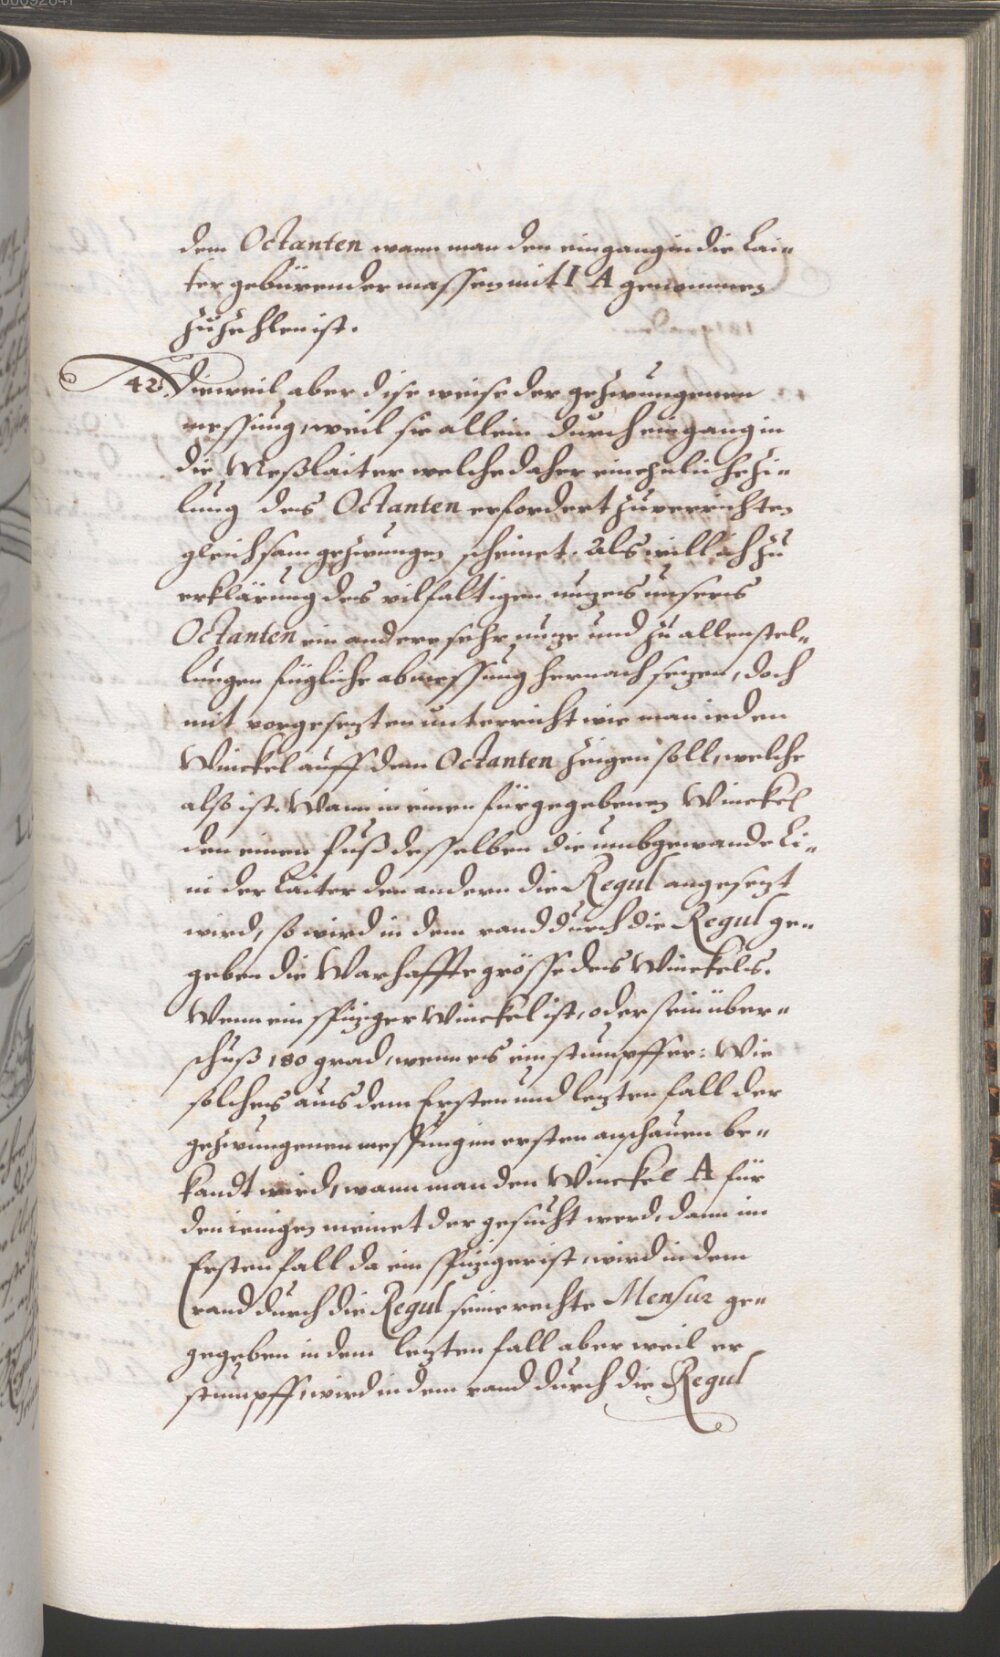 dem Octanten wann man den eingang in die Lai-
ter gebürender massen mit I A genommen
zuzehlen ist.
42. Dieweil aber dise weise der gezwungenen
messung, weil sie allein durch eingang in
die Meßlaiter welche daher ein ehnliche
lung des Octanten erfordert zuverrichten
gleichsam gezwungen scheinet. Als will ich zu
erklärung des vilfaltigen nuzens unsers
Octanten ein andere sehr nuze und zu allen stel-
lungen fügliche abmessung hernach sezen, doch
mit vorgeseztem unterricht wie man ieden
Winckel auff dem Octanten zeigen soll, welche
also ist. Wann in einem fürgegebenen Winckel
den einen fuß desselben die umbgewande Li-
ni der Laiter den andern die Regul angesezt
wird, so wird in dem rand durch die Regul ge-
geben die Warhaffte grösse des Winckels.
Wenn ein spiziger Winckel ist, oder sein über-
schuß 180 grad, wenn es ein stumpffer: Wie
solches aus dem Ersten und lezten fall der
gezwungenen messung im ersten anschauen be-
kandt wird, wann man den Winckel A für
den ienigen meinet der gesucht werd, dann im
Ersten fall da ein spiziger ist, wird in dem
rand durch die Regul seine rechte Mensur ge-
gegeben in dem lezten fall aber weil er
stumpff, wird in dem rand durch die Regul